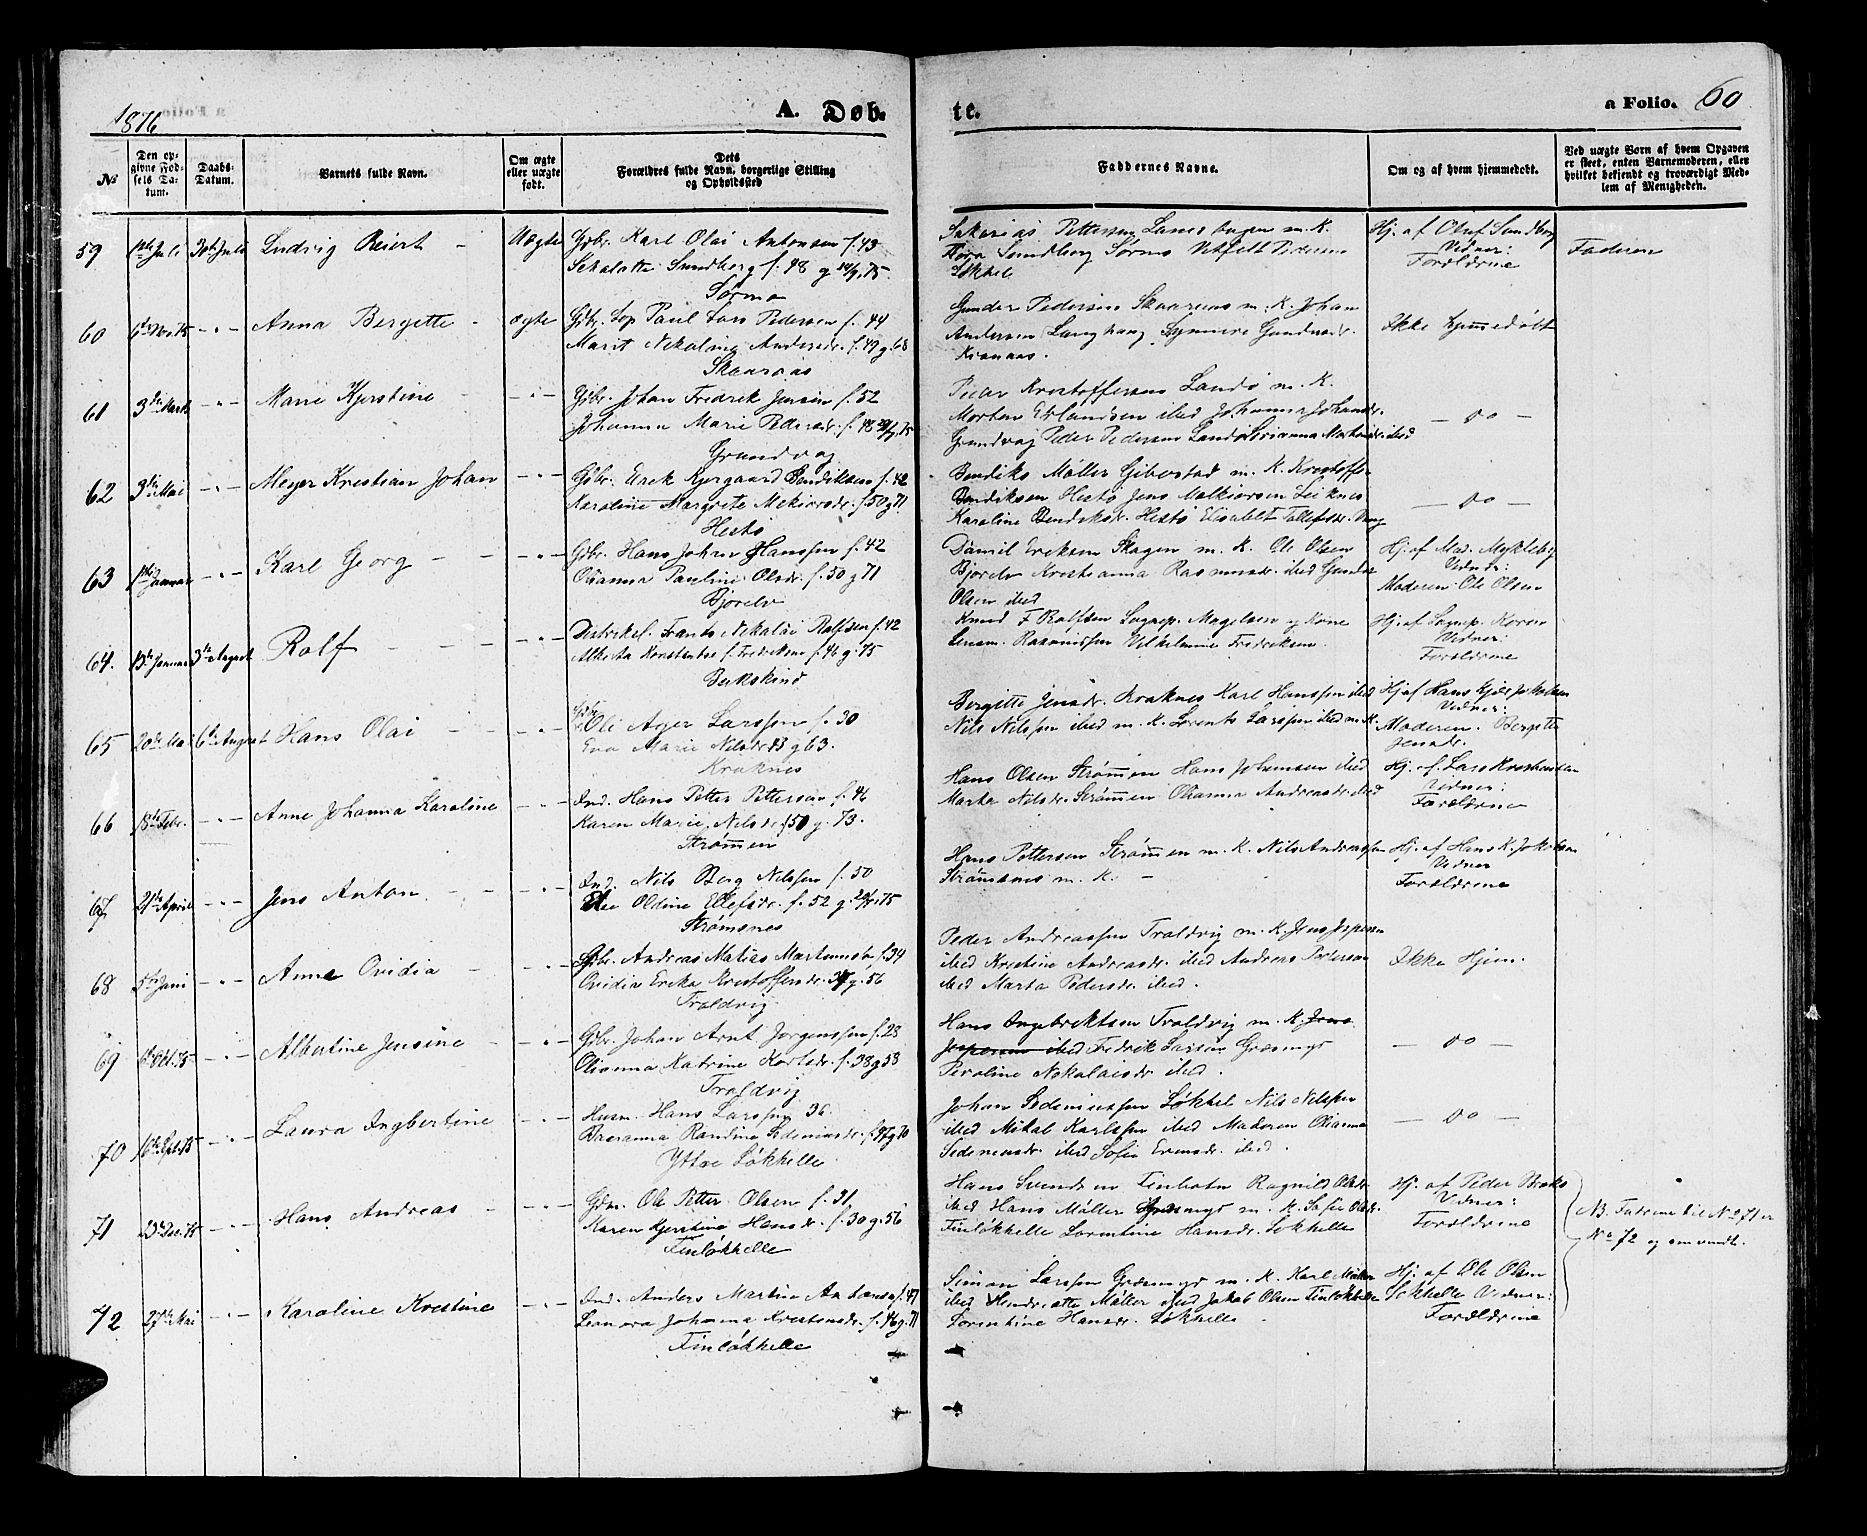 1876
A. Døb-
te.
a Folio. 60
No
Den op-
givne Fød-
sels Da-
tum.
Daabs-
Datum.
Barnets fulde Navn.
Om ægte
eller uægte
født.
Dets
Forældres fulde Navn, borgerlige Stilling
og Opholdssted
Faddernes Navne.
Om og af hvem hjemmedøbt.
Ved uægte Børn af hvem Opgaven
er skeet, enten Barnemoderen, eller
hvilket bekjendt og troværdigt Med-
lem af Menigheden.
59 1ste Juli 30te Juli Ludvig Reiert - Uægte Gdbr. Karl Olai Antonsen f. 43
Sundberg f. 48 g 75
Sørmo
Pettersen m. K.
Sundberg Sørmo Pedersen
Løkhel
Hj. af Oluf Sundberg
Vidner:
Forældrene
Faderen
60 -"- Anna Bergitte - ægte Gdbr. Paul Lars Pedersen f. 44
Marit Nikoline Andersdr. f. 49 g. 68
Skaaraas
Gunder Pedersen Skaaraas m. K. Johan
Andersen Gundersdr.
Ikke hjemmedøbt
61 3die Marts -"- Marie Kjerstine - -"- Gdbr. Johan Fredrik Jensen f. 52
Johanna Marie Pedersdr. f. 48 75
Grundvog
Peder Kristoffersen Landø m. K.
Morten Erlandsen ibid Johanna Johansdr.
Grundvag Peder Pedersen Landø ibid
- do -
62 3die Mai -"- Meyer Kristian Johan -"- Gdbr. Erik Kjergaard Bendiksen f. 42
Karoline Margrete f. 50 g 71
Hestø
Bendiks Møller Gibostad m. K. Kristoffer
Bendiksen Hestø Jens Malkiorsen Leiknes
Karoline Bendiksdr. Hestø Elisabet Tollefsdr. Vang
- do -
63 1ste Januar -"- Karl Georg - - -"- Gdbr. Hans Johan Hanssen f. 42
Oleanna Pauline Olsdr. f. 50 g 71
Bjorelv
Daniel Eriksen Skogen m. K. Ole Olsen
Bjorelv Kristianna Rasmusdr. ibid Gunder
Olsen ibid
Hj. af Mad. Myklebg
Vidner:
Moderen Ole Olsen
64. 13de Januar 3die August Rolf - - - -"- Distriksl. Frants Nikolai Rolfsen f. 42
Alberta Konstantse f. Fredriksen f. 46 g. 75
Knud F Rolfsen Sognep. Magelsen og Kone
Rasmussen Vilhelmine Fredriksen.
Hj. af Sognep. Koren
Vidner:
Forældrene
65 20de Mai 6te August Hans Olai - - -"- Gdbr. Ole Ager Larssen f. 30
Eva Marie Nilsdr. g 63.
Kraknes
Bergitte Jensdr. Kraknes Karl Hanssen ibid
Nils Nilssen ibid m. K. Lorents Larssen ibid m. K.
Hj af Hans Kjel Jakobsen
Vidner:
Moderen. Bergitte
Jensdr.
66 18de Febr. -"- Anne Johanna Karoline -"- Ind. Hans Petter Pettersen f. 46
Karen Marie Nilsdr. f 50 g. 73.
Strømmen
Hans Olsen Strømmen Hans Johansen ibid
Marta Nilsdr. Strømmen Oleanna Andreasdr. ibid
Hj. af. Lars Kristiansen
Vidner:
Forældrene
67 24de April -"- Jens Anton - - -"- Ind. Nils Berg Nilssen f. 50
Oldine Ellefsdr. f. 52 g. 75
Strømsnes
Hans Pettersen Strømmen m. K. Nils Andreassen
Strømsnes m. K. -
Hj. af Hans K. Jakobsen
Vidner
Forældrene
68 5te Juni -"- Anne Ovidia - -"- Gdbr. Andreas Matias Martinusen f. 34
Ovidia Erika Kristoffersdr. g. 56
Troldvig
Peder Andreassen Troldvig m. K. Jens Jespersen
ibid Kristine Andreasdr. ibid Andreas Pedersen
ibid Marta Pedersdr. ibid.
Ikke Hjem.
69 6te Okt. 75 -"- Albertine Jensine - -"- Gdbr. Johan Arnt Jørgenssen f. 23
Oleanna Katrine Karlsdr. f. 38 g 58
Troldvig
Hans Ingebriktsen Troldvig m. K. Jens
Jespersen ibid Fredrik Larsen Græsmyr
Peroline Nikolaisdr ibid.
- do -
70 16de Sept. 75 -"- Laura Ingbertine -"- Husm. Hans Larssen 36
Bereanna Randine Sedeniusdr. f. 47 g 70
Yttre Løkhelle
Johan Sedeniussen Løkhel Nils Nilssen
ibid Mikal Karlssen ibid Moderen Oleanna
Sedeniusdr. ibid Sofie Evensdr. ibid.
- do -
71 23de Dec. 75 -"- Hans Andreas - -"- Gdm. Ole Petter Olsen f. 31
Karen Kjerstine Hansdr. f. 30 g. 56
Finløkhelle
Hans Svendsen Finbotn Ragnild Olsdr.
ibid Hans Møller Græsmyr m. K. Sofie Olsdr.
Finløkhelle Lorentine Hansdr. Løkhelle
Hj. af Peder Boks
Vidner:
Forældrene
NB. Fadrene til No 71 er
No 72 og omvendt.
72 27de Mai -"- Karoline Kristine -"- Ind. Anders Martin Antonsen f. 47
Leonora Johanna Kristensdr. f. 46 g. 71
Finløkhelle
Simon Larssen Græsmyr m. K. Karl Møller
ibid Hendriette Møller ibid Jakob Olsen Finløkhelle
Lorentine Hansdr. Løkhelle.
Hj. af Ole Olsen
Løkhelle Vidner:
Forældrene